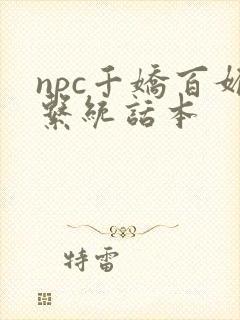 npc千嬌百媚
繫統話本
特雷